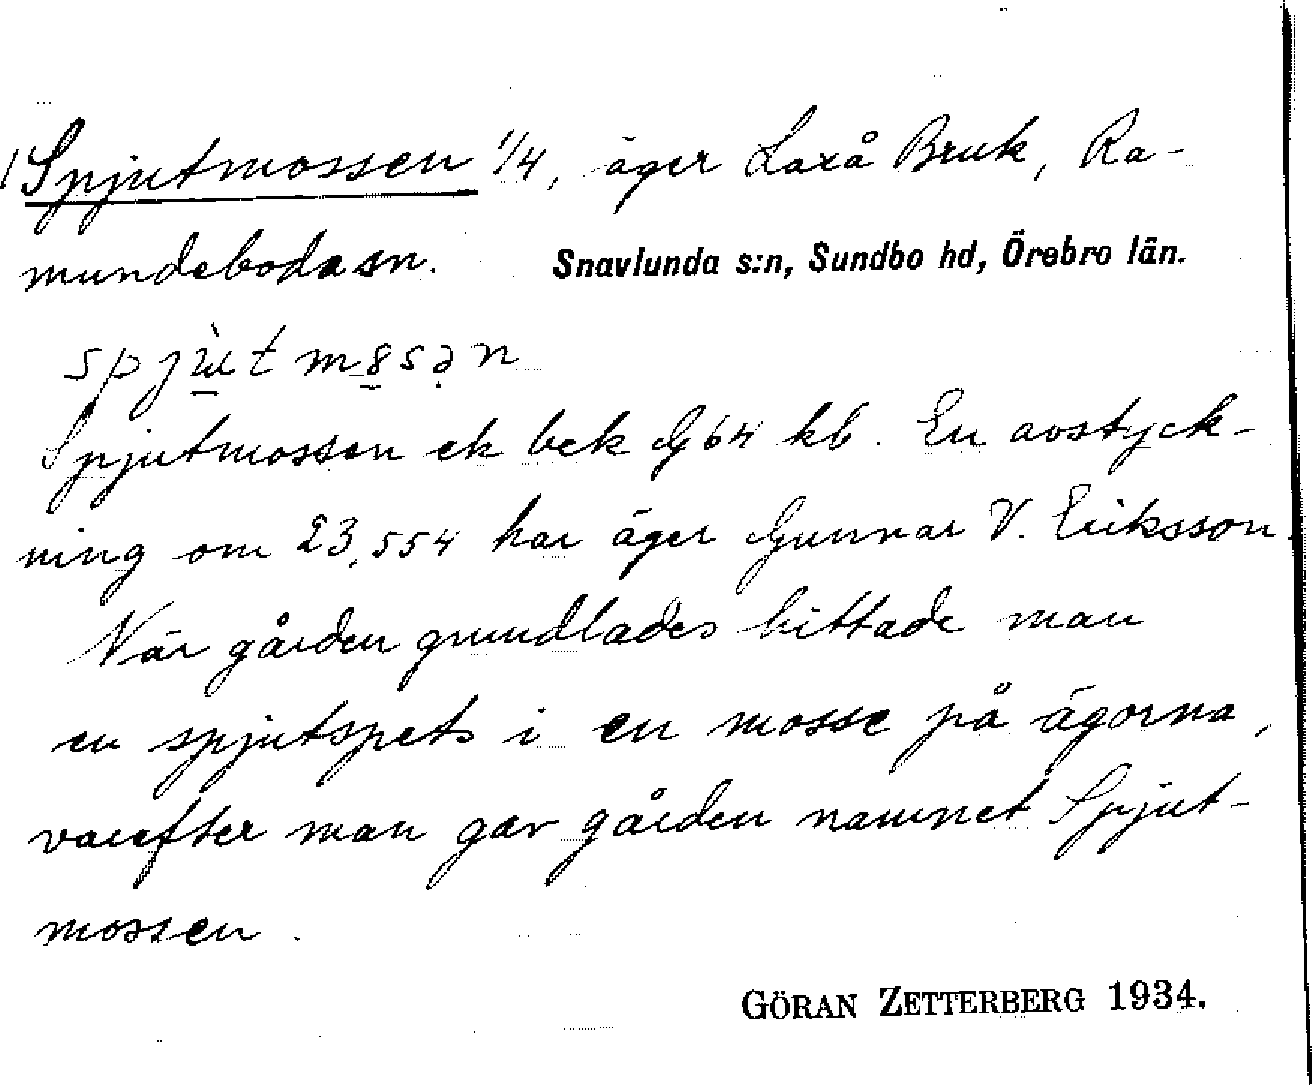 Spjutmossen 1/4, äger Laxå Bruk, Ra-
mundeboda sn. Snavlunda s:n, Sundbo hd, Örebro län.
Spjutmossen ek bek G 64 kb. En avstyck-
ning om 23,554 har äger Gunnar V. Eriksson.
När gården grundlades hittade man
en spjutspets i en mosse på ägorna,
varefter man gav gården namnet Spjut-
mossen.
GÖRAN ZETTERBERG 1934.